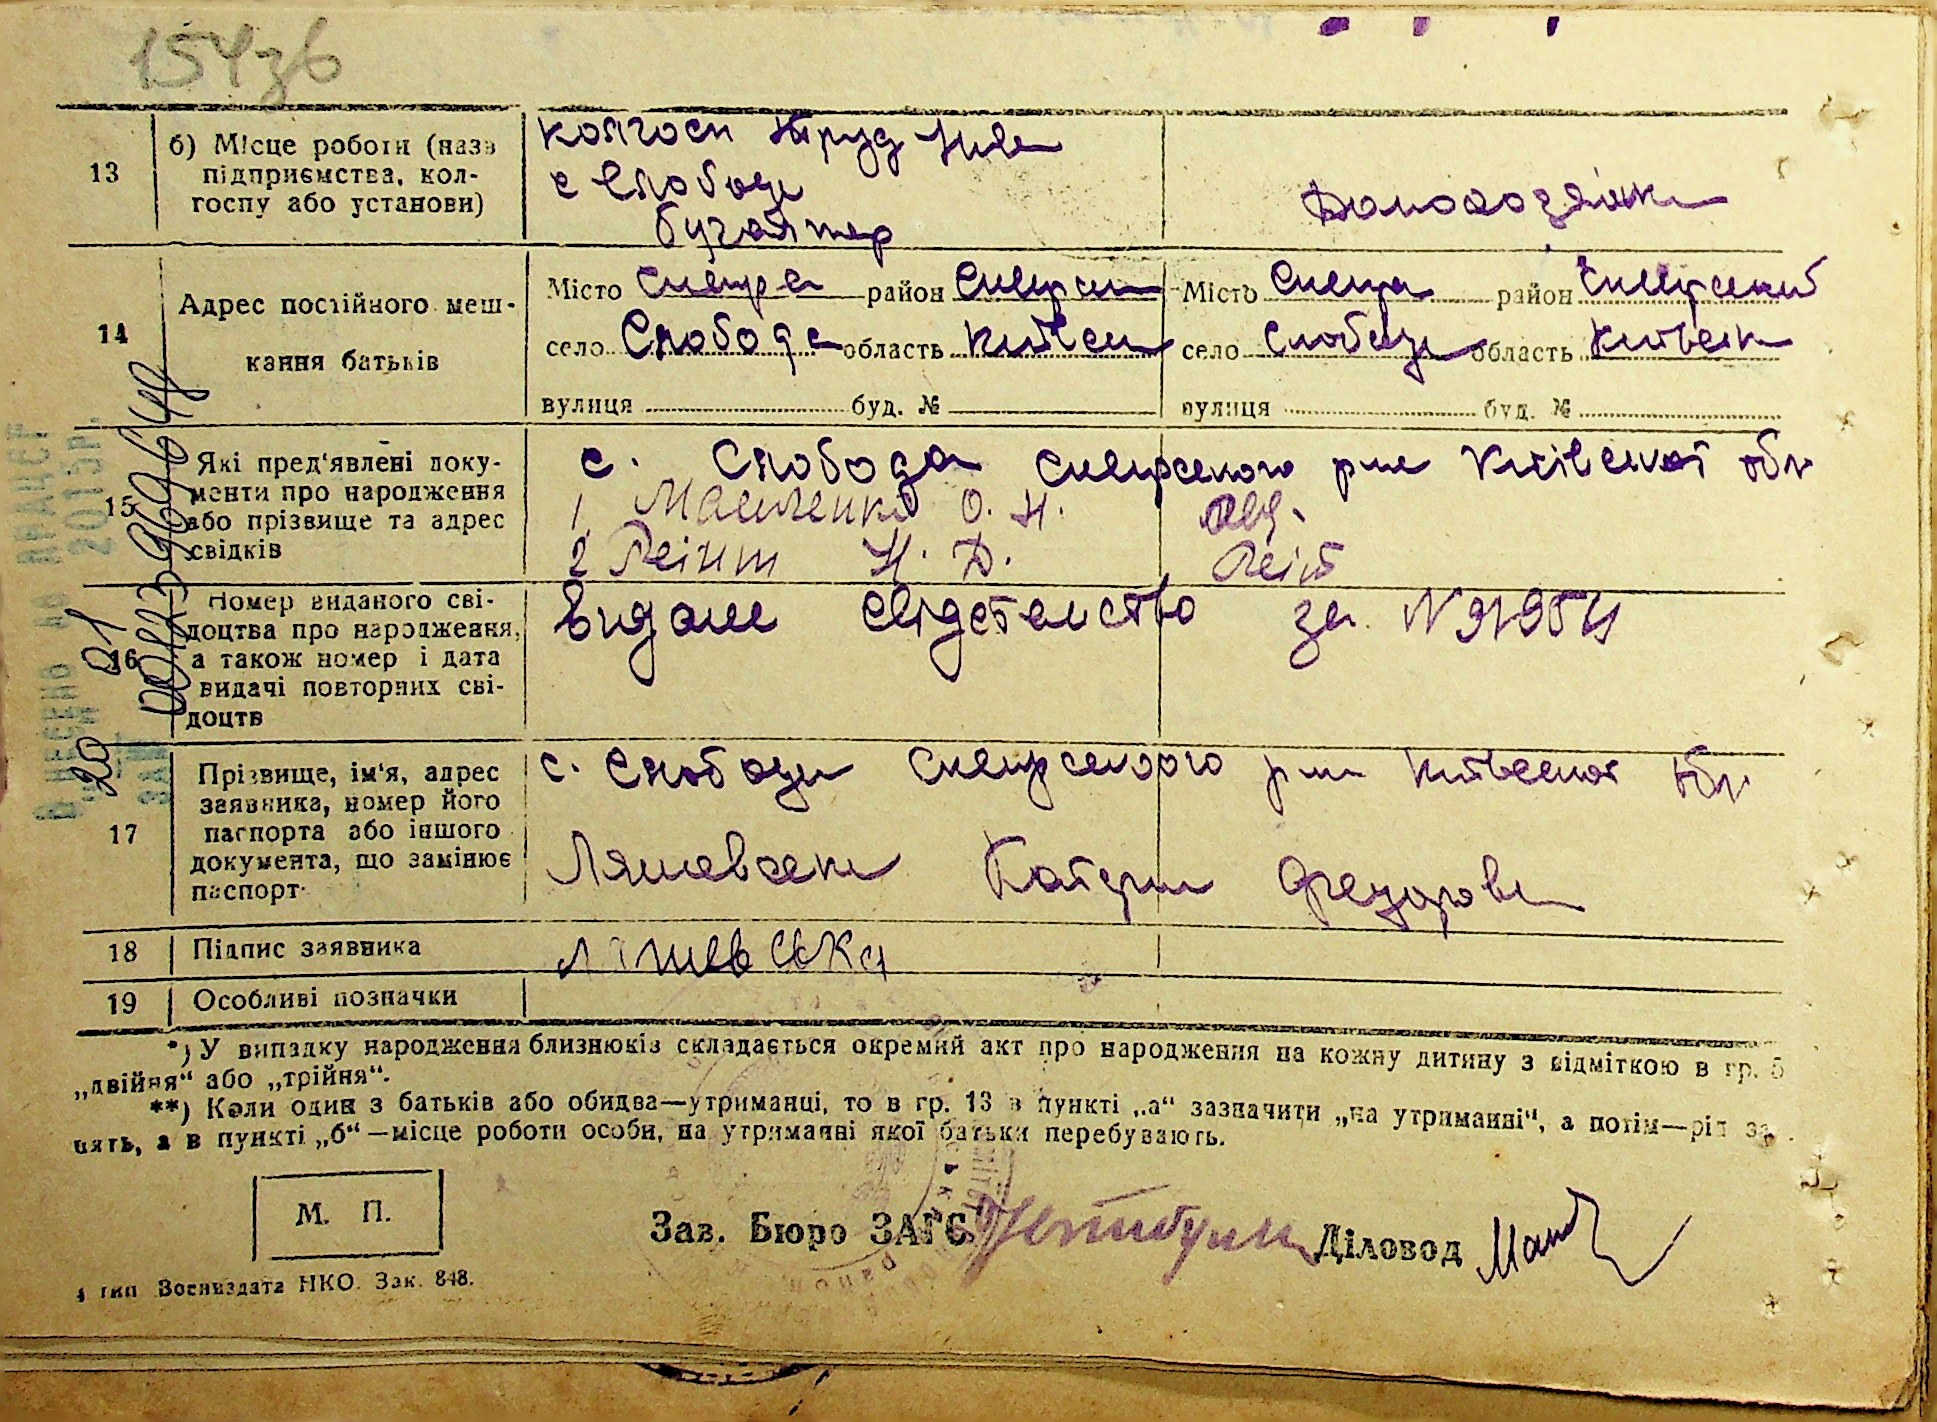 154зв
13
б) Місце роботи (назв
підприємства, кол-
госпу або установи)
колгосп Труд
с Слобода
бухгалтер
Домохозяйк
14
Адрес постійного меш-
кання батьків
Місто Сквира район Сквирськ
село Слобода область Київськ
вулиця буд. №
Місто Сквира район Сквирський
село Слобода область Київськ
вулиця буд. №
15
Які пред'явлені доку-
менти про народження
або прізвище та адрес
свідків
с. Слобода Сквирського р-на Київської обл
1 О. Н.
2 Н. Д.
16
Номер виданого сві-
доцтва про народження,
а також номер і дата
видачі повторних сві-
доцтв
видане свідетельство за N
17
Прізвище, ім'я, адрес
заявника, номер його
паспорта або іншого
документа, що замінює
паспорт
с. Слобода Сквирського р-на Київської обл
Ляшевська Катерина Федорівна
18
Підпис заявника
Ляшевська
19
Особливі позначки
*) У випадку народження близнюків складається окремий акт про народження на кожну дитину з відміткою в гр. 5
„двійня“ або „трійня“.
**) Коли один з батьків або обидва—утриманці, то в гр. 13 в пункті „а“ зазначити „на утриманні“, а потім—рід за
нять, а в пункті „б“—місце роботи особи, на утриманні якої батьки перебувають.
М. П.
Зав. Бюро ЗАГС
Діловод
4 тип Воениздата НКО. Зак. 848.